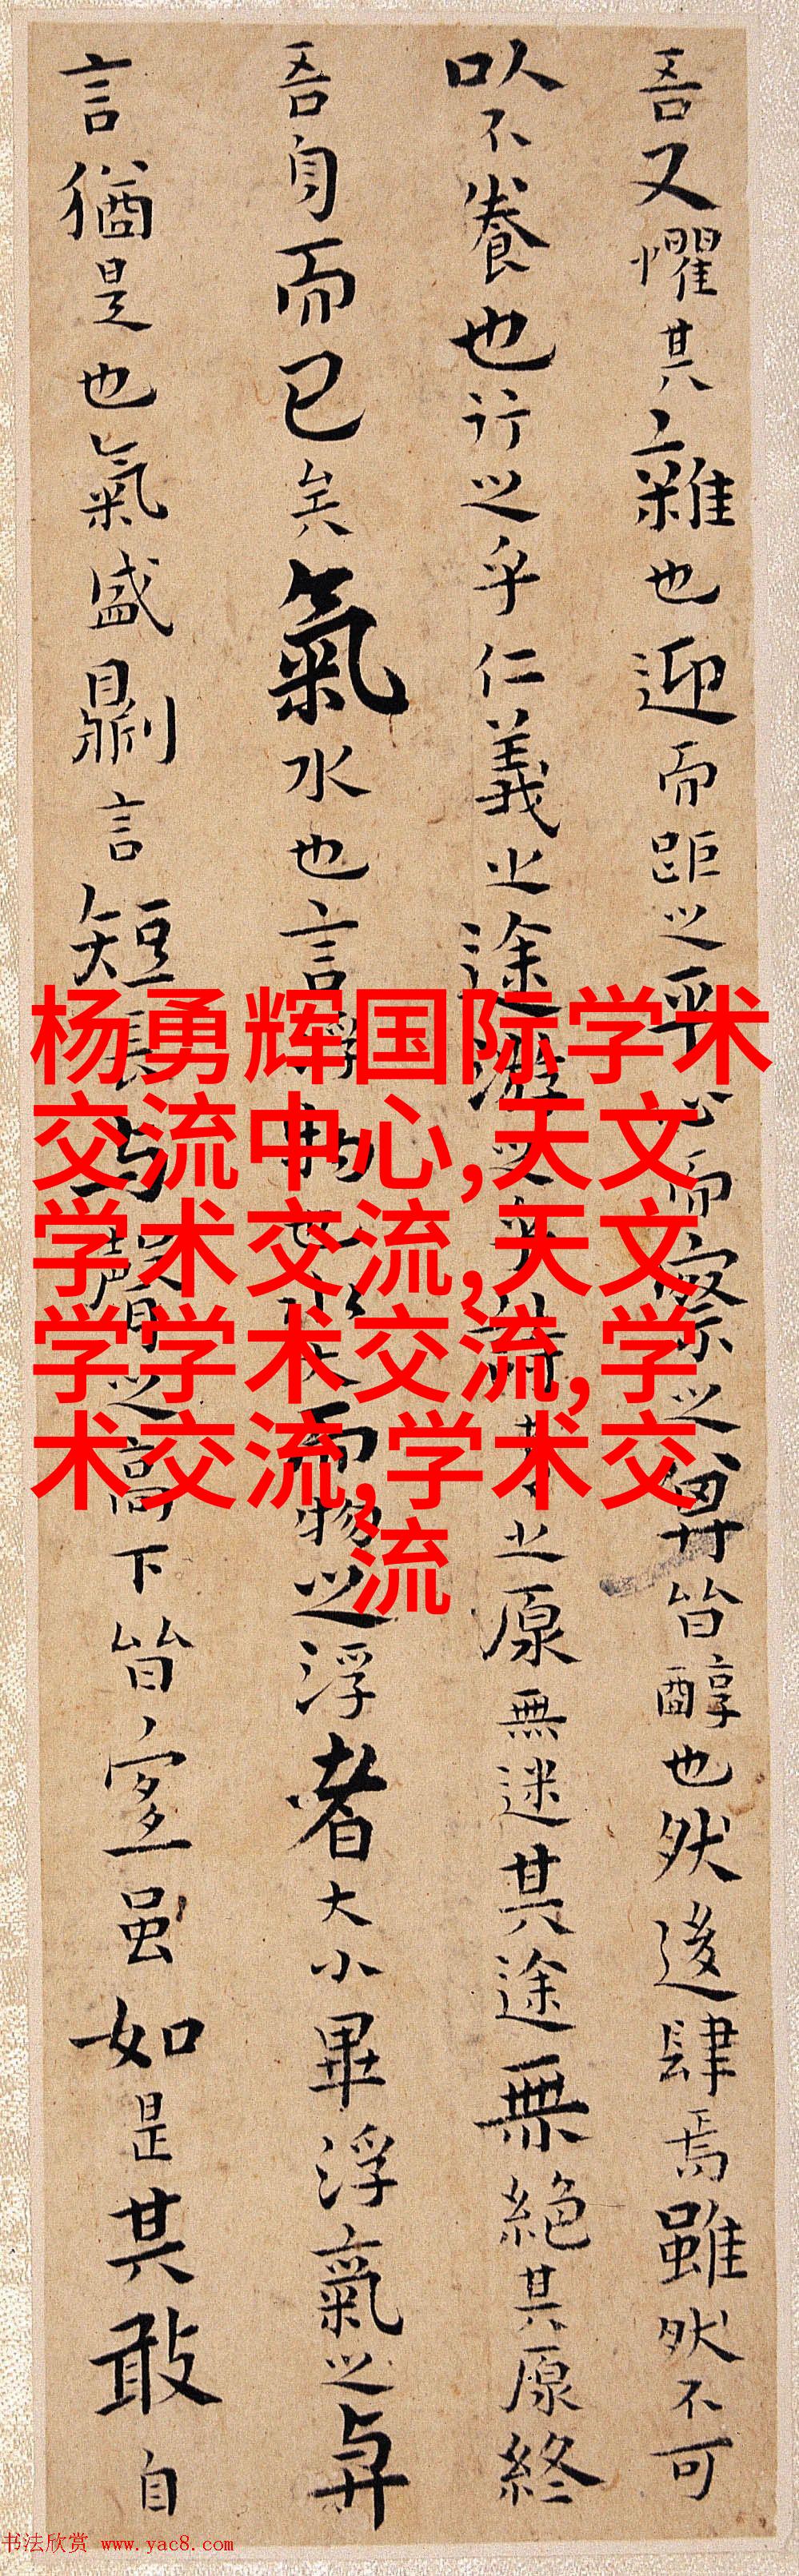 吾又懼其雜也迎而距之平心而察之其皆醇也然後肆焉雖然不可
以不養也行之乎仁義之途游之乎詩書之原無迷其途無絕其原終
吾身而已矣氣水也言浮物也水大而物之浮者大小畢浮氣之與
言猶是也氣盛則言短長與聲之高下皆宜雖如是其敢自
杨勇辉国际学术
交流中心,天文
学术交流,天文
学学术交流,学
术交流,学术交
流
书法欣赏 www.yac8.com